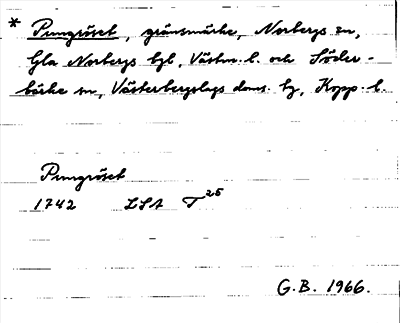 * Pungröset, gränsmärke, Norbergs sn,
Gla Norbergs bgl, Västm. l. och Söder-
bärke sn, Västerbergslags doms. hg, Kopp. l.
Pungröset
1742 LSA T 25
G.B. 1966.